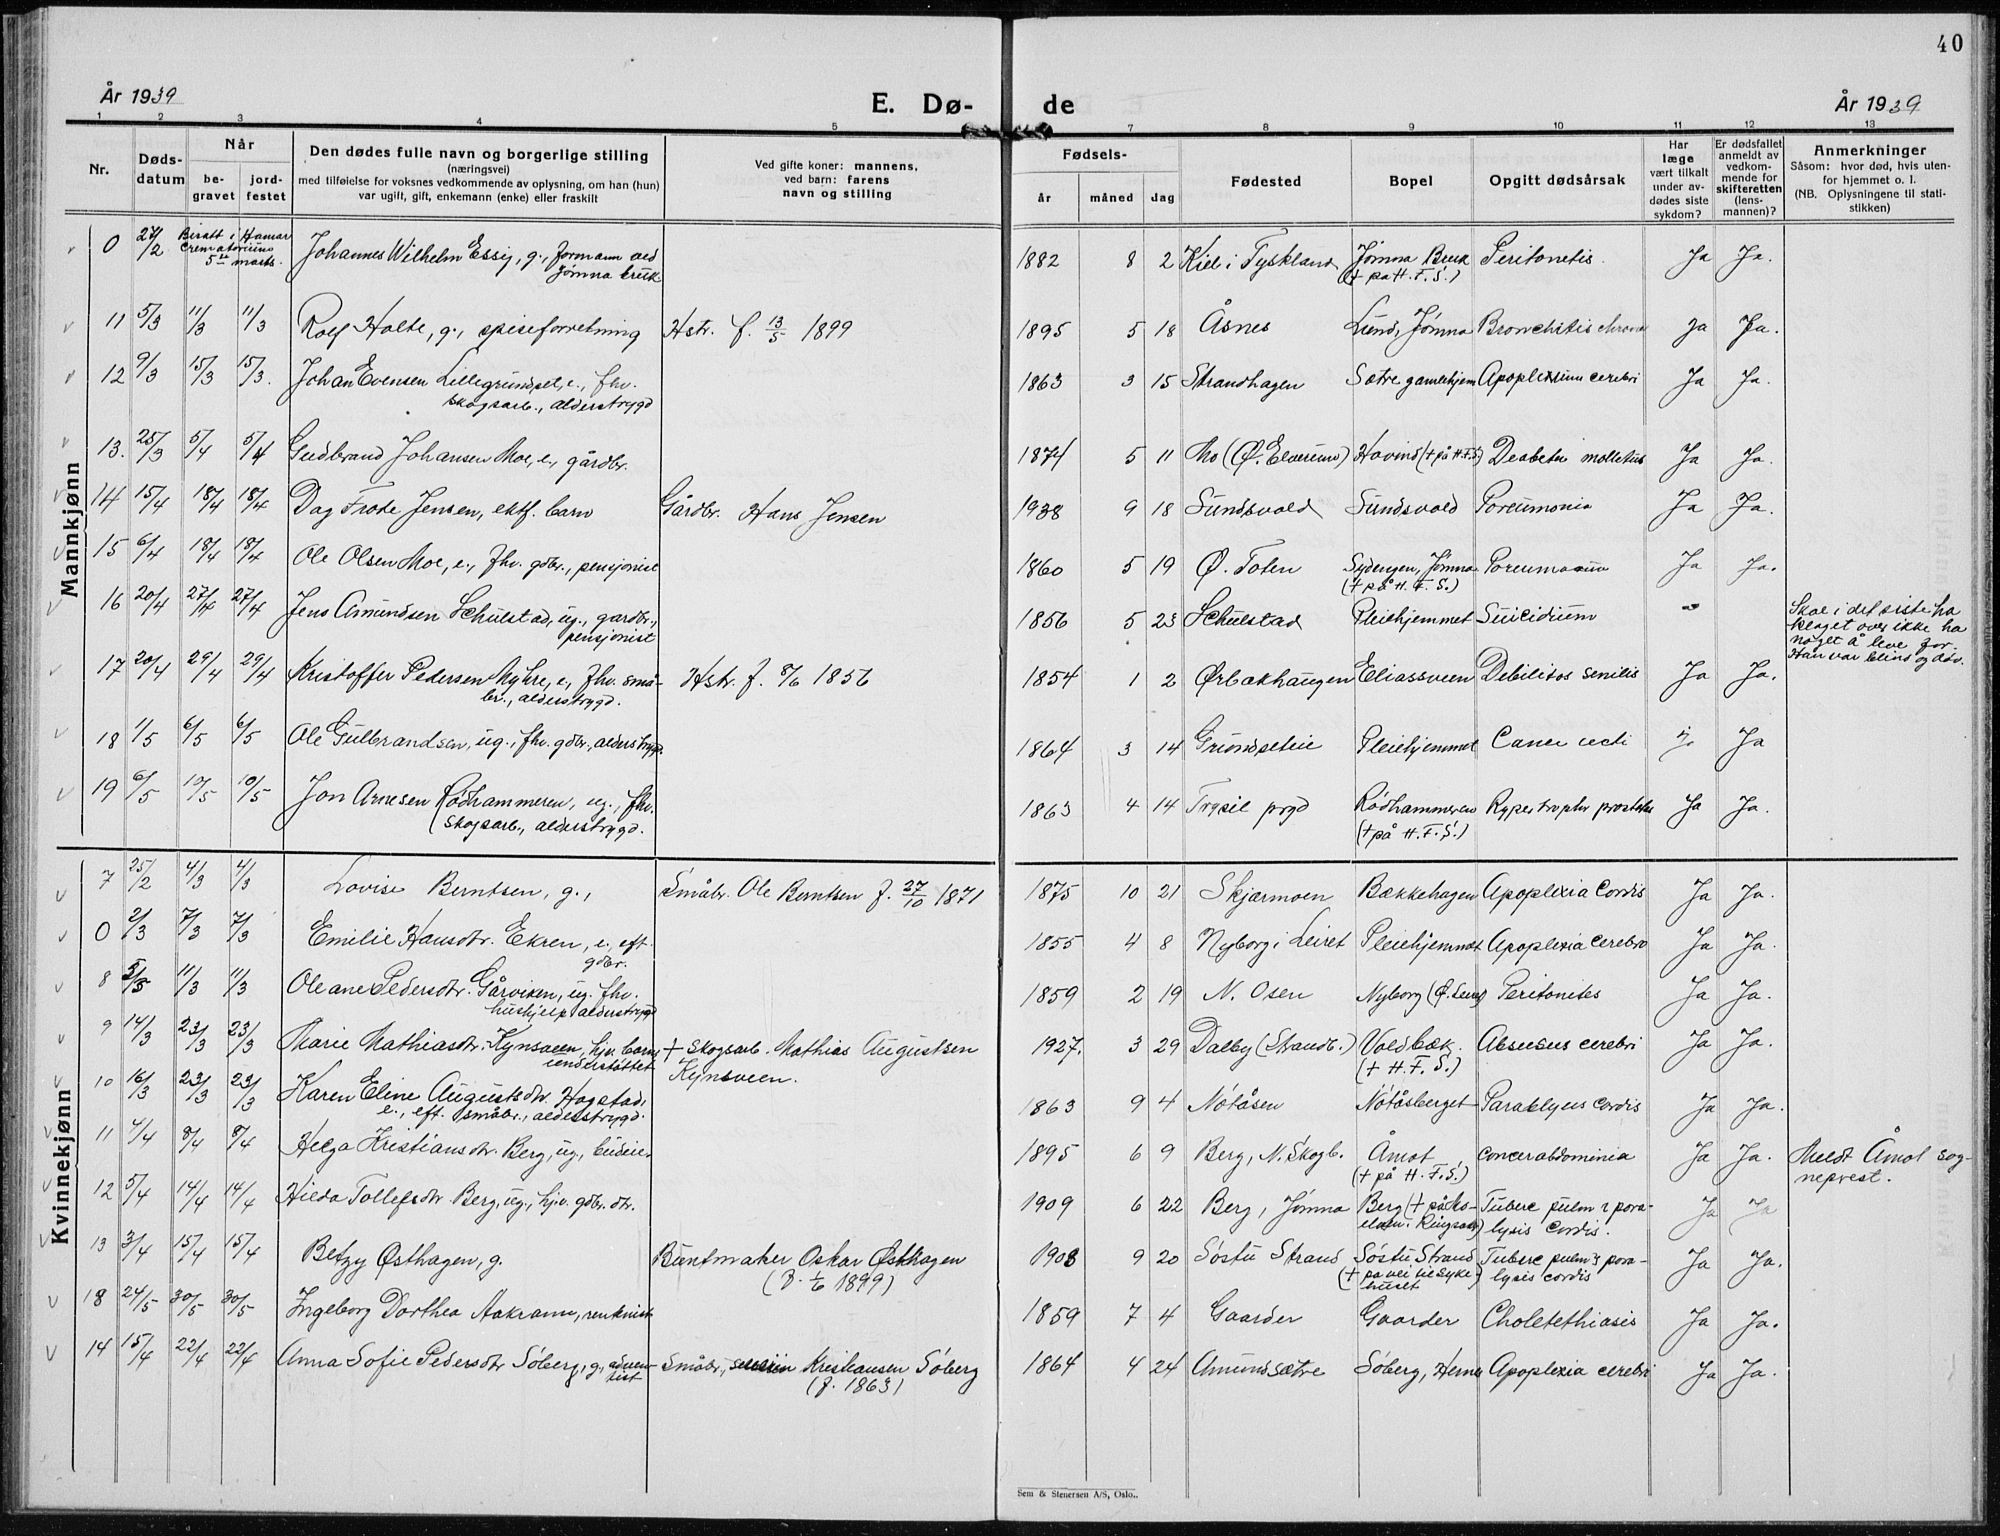 40
År 1939
E. Dø-
de
År 1939
1 2 3 4 5 7 8 9 10 11 12 13
Nr.
Døds-
datum
Når
be-
gravet
jord-
festet
Den dødes fulle navn og borgerlige stilling
(næringsvei)
med tilføielse for voksnes vedkommende av oplysning, om han (hun)
var ugift, gift, enkemann (enke) eller fraskilt
Ved gifte koner: mannens,
ved barn: farens
navn og stilling
Fødsels-
år måned dag
Fødested
Bopel
Opgitt dødsårsak
Har
læge
vært tilkalt
under av-
dødes siste
sykdom?
Er dødsfallet
anmeldt av
vedkom-
mende for
skifteretten
(lens-
mannen)?
Anmerkninger
Såsom: hvor død, hvis uten-
for hjemmet o. l.
(NB. Oplysningene til stati-
stikken)
Mannkjønn
0 27/2 Bisatt i Hamar Crematorium 5te marts. Johannes Wilhelm Essig, g., formann ved Jømna bruk 1882 8 2 Kiel i Tyskland Jømna Bruk (+ på H.F.S.) Peritonetis. Ja Ja.
11 5/3 11/3 11/3 Rolf Holte, g., spiseforretning Hstr. f. 13/5 1899 1895 5 18 Åsnes Lund, Jømna Bronchitis Ja Ja.
12 9/3 15/3 15/3. Johan Evensen Lillegrundset, e., fhv. skogsarb., alderstrygd 1863 3 15 Strandhagen Sætre gamlehjem cerebri Ja Ja.
13. 25/3 5/4 5/4 Gudbrand Johansen Moe, e., gårdbr. 1874 5 11 Mo (Ø. Elverum) Hovind (+ på H.F.S) Deabetes Ja Ja.
14 15/4 18/4 18/4 Dag Frode Jensen, ektf. barn Gårdbr. Hans Jensen 1938 9 18 Sundsvold Sundsvold Ja Ja.
15 6/4 18/4 18/4 Ole Olsen Moe, e., fhv. gdbr., pensjonist 1860 5 19 Ø. Toten Sydengen, Jømna (+ på H.F.S.) Ja Ja.
16 20/4 27/4 27/4 Jens Amundsen Schulstad, ug., gardbr., pensjonist 1856 5 23 Schulstad Pleiehjemmet Suicidium Skal i det siste ha klaget over ikke ha noget å leve for. Han var blind og døv.
17 20/4 29/4 29/4 Kristoffer Pedersen Myhre, e., fhv. små- br., alderstrygd. Hstr. f. 8/6 1856 1854 1 2 Ørbækhaugen Eliassveen Debilitas senilis Ja Ja.
18 1/5 6/5 6/5 Ole Gulbrandsen, ug., fhv. gdbr., alderstrygd. 1864 3 14 Grundsetlie Pleiehjemmet Ja Ja
19 6/5 10/5 10/5 Jon Arnesen Rødhammeren, ug., fhv. skogsarb., alderstrygd. 1863 4 14 Trysil prgd Rødhammeren (+ på H.F.S.) Ja Ja.
Kvinnekjønn
7 25/2 4/3 4/3 Lovise Berntsen, g., Småbr. Ole Berntsen f. 27/10 1871 1875 10 21 Skjærmoen Bækkehagen Apoplexia Cordis Ja Ja.
0 2/3 7/3 7/3 Emilie Hansdtr. Ekren, e. eft. gdbr. 1855 4 8 Nyborg i Leiret Pleiehjemmet Apoplexia cerebro Ja Ja.
8 11/3 11/3 Oleane Pedersdtr. Gårviken, ug. fhv. hushjelp alderstrygd 1859 2 19 N. Osen Nyborg Peritonites Ja Ja.
9 14/3 23/3 23/3 Marie Mathiasdtr. Kynsveen, hjv. barn, understøttet + Skogsarb. Mathias Augustsen Kynsveen. 1927. 3 29 Dalby (Strandb.) Voldbæk. (+ H.F.S.) Absesus cerebri Ja Ja.
10 16/3 23/3 23/3 Karen Eline Augustsdtr. Hogstad, e., eft. småbr., alderstrygd. 1863 9 4 Nøtåsen Nøtåsberget Paraklyus cordis Ja Ja.
11 4/4 8/4 8/4 Helga Kristiansdtr. Berg, ug., budeie. 1895 6 9 Berg, N. Skogb. Åmot (+ på H.F.S.) Ja Ja. Meldt Åmot sog- neprest.
12 5/4 14/4 14/4 Hilda Tollefsdtr. Berg, ug., hjv. gdbr. dtr. 1909 6 22 Berg, Jømna Berg Tuberc pulm & para- lysis cordis. Ja Ja
13 3/4 15/4 15/4 Betzy Østhagen, g. Buntmaker Oskar Østhagen (f. 1/6 1899) 1908 9 20 Søstu Strand Søstu Strand (+ på vei til syke- huset) Tuberc pulm & para- lysis cordis Ja Ja.
18 24/5 30/5 30/5 Ingeborg Dorthea Aakrann, rentenist 1859 7 4 Gaarder Gaarder Choletethiasis Ja Ja.
14 15/4 22/4 22/4 Anna Sofie Pedersdtr Søberg, g., adven- tist Småbr., Severin Kristiansen Søberg (f. 1863) 1864 4 24 Amundsætre Søberg, Hernes Apoplexia cerebri Ja Ja.
Sem & Stenersen A/S, Oslo..